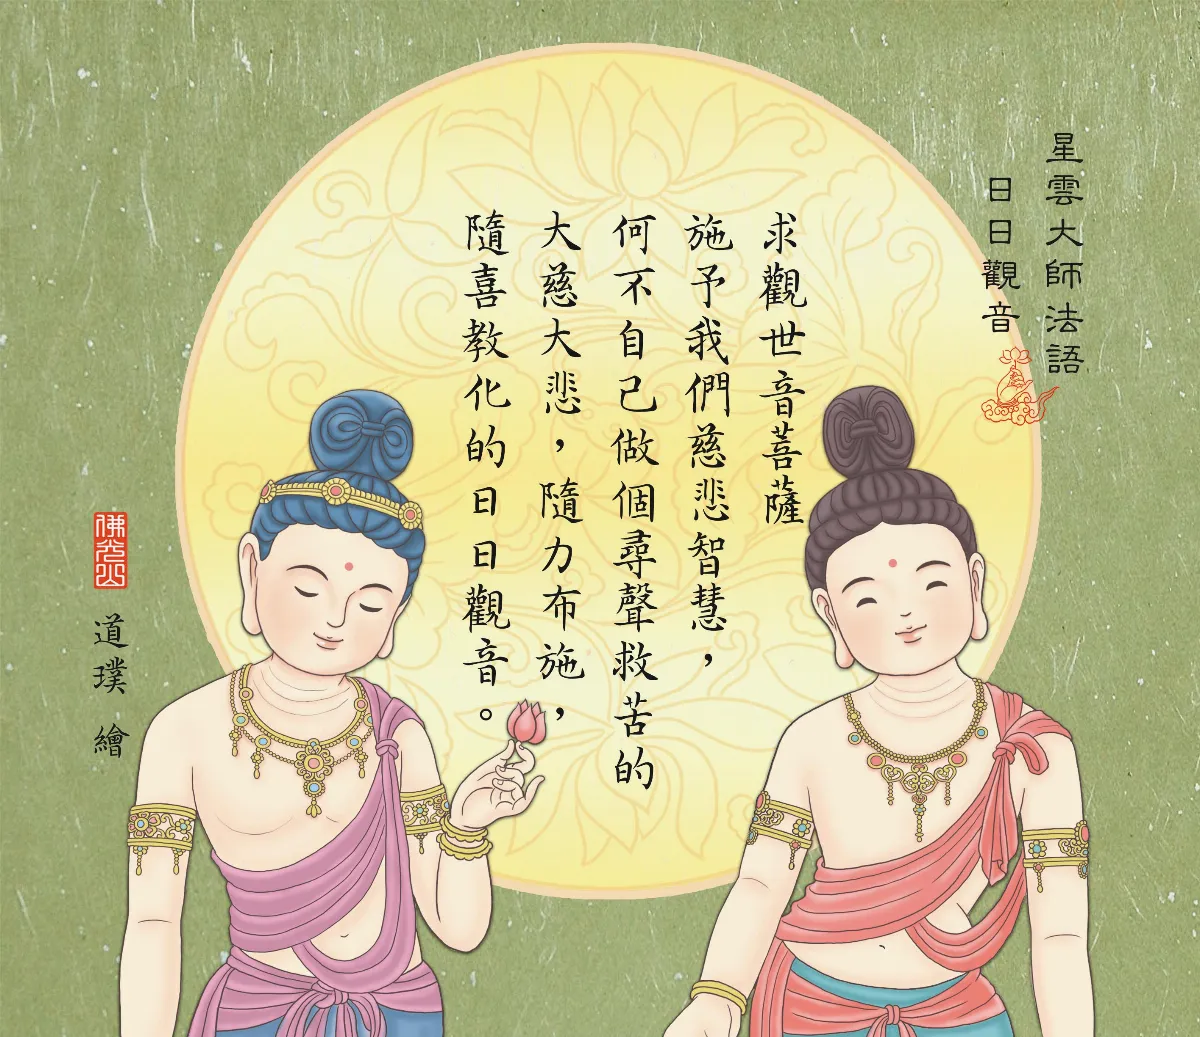 星雲大師法語
日日觀音
求觀世音菩薩
施予我們慈悲智慧，
何不自己做個尋聲救苦的
大慈大悲，隨力布施，
隨喜教化的日日觀音。
佛光山
道璞 繪